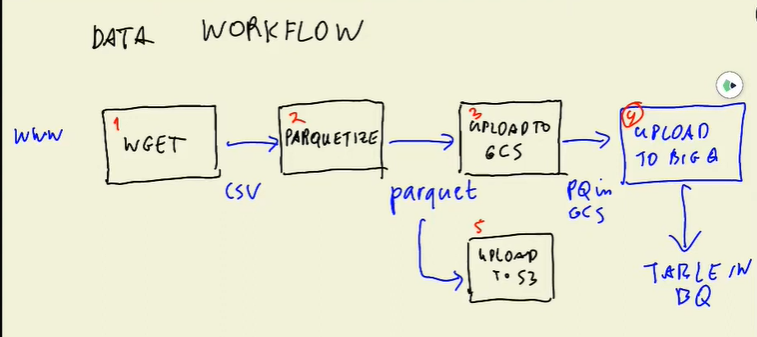 DATA WORKFLOW
www
1
WGET
CSV
2
PARQUETIZE
parquet
3
UPLOAD TO
GCS
PQ in
GCS
4
UPLOAD
TO BIG Q
TABLE IN
BQ
5
UPLOAD
TO S3